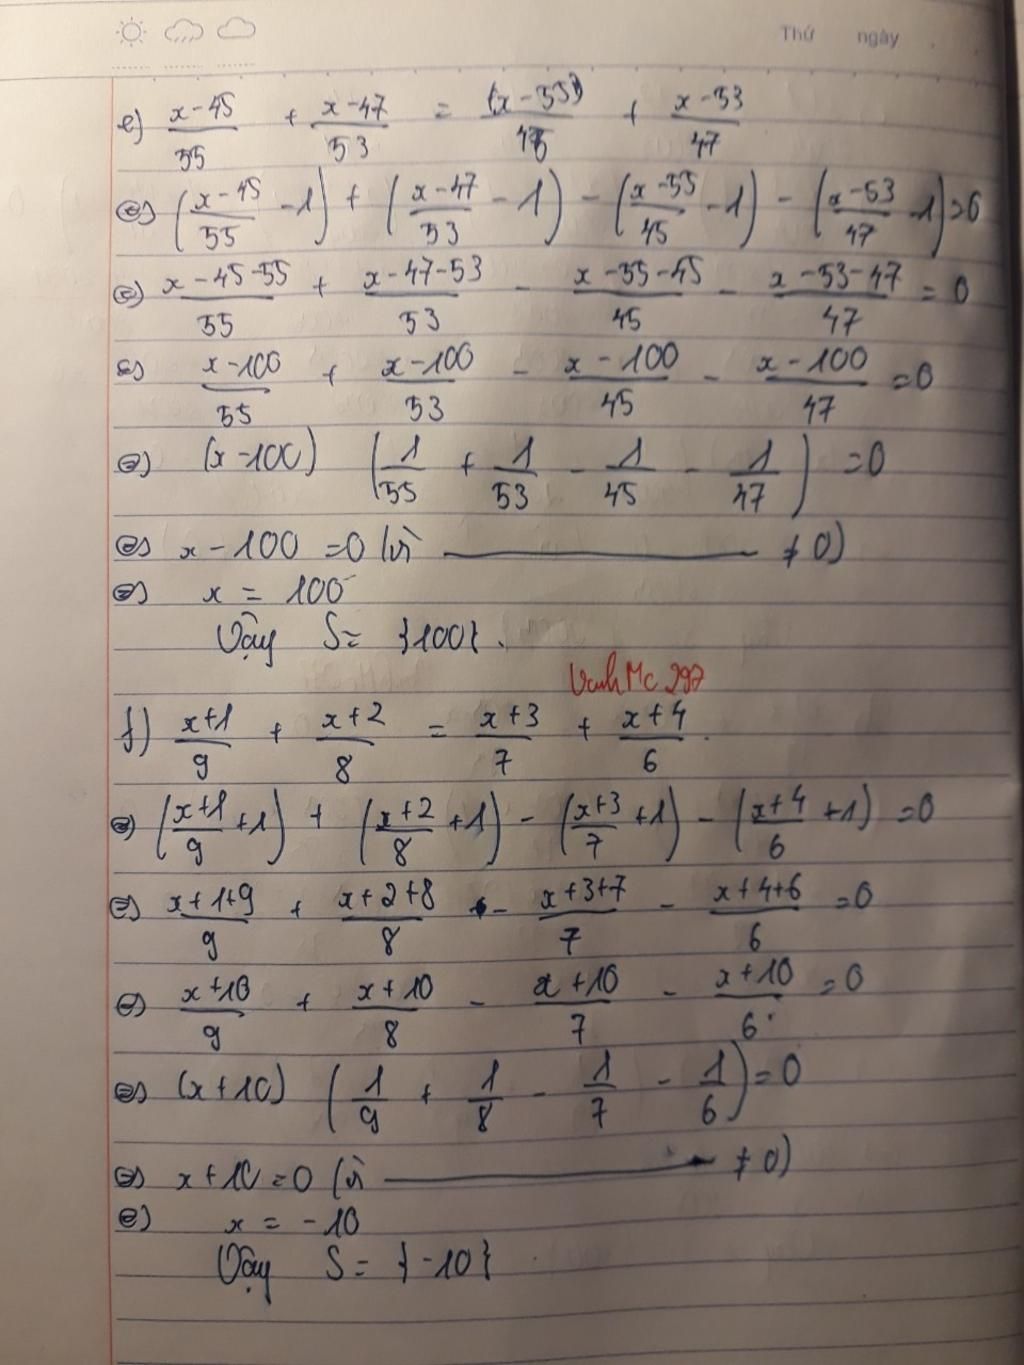 Thứ ngày
e) (x-45)/55 + (x-47)/53 = (x-55)/45 + (x-53)/47
⇔ ((x-45)/55 - 1) + ((x-47)/53 - 1) - ((x-55)/45 - 1) - ((x-53)/47 - 1) = 0
⇔ (x-45-55)/55 + (x-47-53)/53 - (x-55-45)/45 - (x-53-47)/47 = 0
⇔ (x-100)/55 + (x-100)/53 - (x-100)/45 - (x-100)/47 = 0
⇔ (x-100) (1/55 + 1/53 - 1/45 - 1/47) = 0
⇔ x - 100 = 0 (vì ——— ≠ 0)
⇔ x = 100
Vậy S = {100}.
f) (x+1)/9 + (x+2)/8 = (x+3)/7 + (x+4)/6.
⇔ ((x+1)/9 + 1) + ((x+2)/8 + 1) - ((x+3)/7 + 1) - ((x+4)/6 + 1) = 0
⇔ (x+1+9)/9 + (x+2+8)/8 - (x+3+7)/7 - (x+4+6)/6 = 0
⇔ (x+10)/9 + (x+10)/8 - (x+10)/7 - (x+10)/6 = 0
⇔ (x+10) (1/9 + 1/8 - 1/7 - 1/6) = 0
⇔ x+10 = 0 (vì ——— ≠ 0)
⇔ x = -10
Vậy S = {-10}